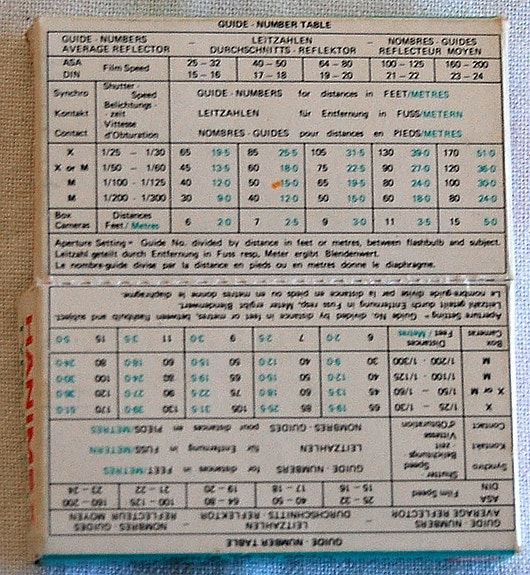 GUIDE - NUMBER TABLE
GUIDE - NUMBERS – LEITZAHLEN – NOMBRES - GUIDES
AVERAGE REFLECTOR DURCHSCHNITTS - REFLEKTOR REFLECTEUR MOYEN
ASA Film Speed 25 – 32 40 – 50 64 – 80 100 – 125 160 – 200
DIN 15 – 16 17 – 18 19 – 20 21 – 22 23 – 24
Synchro Shutter - Speed GUIDE - NUMBERS for distances in FEET/METRES
Kontakt Belichtungs - zeit LEITZAHLEN für Entfernung in FUSS/METERN
Contact Vittesse d'Obturation NOMBRES - GUIDES pour distances en PIEDS/METRES
X 1/25 – 1/30 65 19·5 85 25·5 105 31·5 130 39·0 170 51·0
X or M 1/50 – 1/60 45 13·5 60 18·0 75 22·5 90 27·0 120 36·0
M 1/100 - 1/125 40 12·0 50 15·0 65 19·5 80 24·0 100 30·0
M 1/200 - 1/300 30 9·0 40 12·0 50 15·0 60 18·0 80 24·0
Box Cameras Distances Feet / Metres 6 2·0 7 2·5 9 3·0 11 3·5 15 5·0
Aperture Setting = Guide No. divided by distance in feet or metres, between flashbulb and subject.
Leitzahl geteilt durch Entfernung in Fuss resp. Meter ergibt Blendenwert.
Le nombre-guide divise par la distance en pieds ou en metres donne le diaphragme.
GUIDE - NUMBER TABLE
GUIDE - NUMBERS – LEITZAHLEN – NOMBRES - GUIDES
AVERAGE REFLECTOR DURCHSCHNITTS REFLEKTOR REFLECTEUR MOYEN
ASA Film Speed 25 – 32 40 – 50 64 – 80 100 – 125 160 – 200
DIN 15 – 16 17 – 18 19 – 20 21 – 22 23 – 24
Synchro Shutter Speed GUIDE - NUMBERS for distances in FEET/METRES
Kontakt Belichtungs - zeit LEITZAHLEN für Entfernung in FUSS/METERN
Contact Vittesse d'Obturation NOMBRES - GUIDES pour distances en PIEDS/METRES
X 1/25 – 1/30 65 19·5 85 25·5 105 31·5 130 39·0 170 51·0
X or M 1/50 – 1/60 45 13·5 60 18·0 75 22·5 90 27·0 120 36·0
M 1/100 - 1/125 40 12·0 50 15·0 65 19·5 80 24·0 100 30·0
M 1/200 - 1/300 30 9·0 40 12·0 50 15·0 60 18·0 80 24·0
Box Cameras Distances Feet / Metres 6 2·0 7 2·5 9 3·0 11 3·5 15 5·0
Aperture Setting = Guide No. divided by distance in feet or metres, between flashbulb and subject.
Leitzahl geteilt durch Entfernung in Fuss resp. Meter ergibt Blendenwert.
Le nombre guide divise par la distance en pieds ou en metres donne le diaphragme.